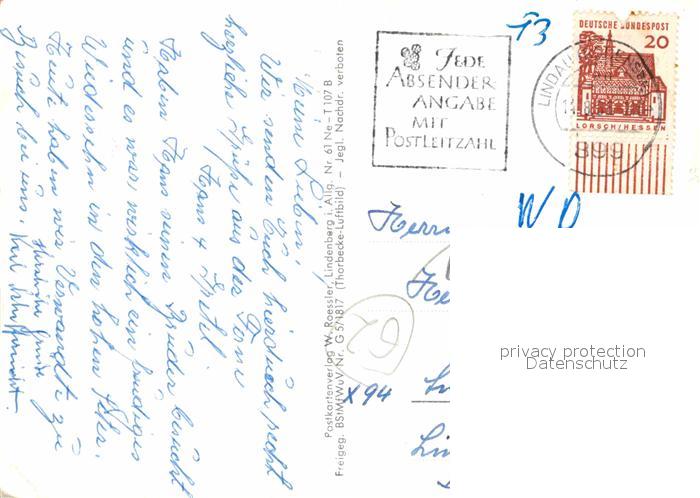 Meine Lieben!
Wir senden Euch hierdurch recht
herzliche Grüße aus der Ferne
Hans + Gretel
Haben Hans seinen Bruder besucht
und es war wirklich ein freudiges
Wiedersehn in den hohen
Heute haben wir Verwandte zu
Besuch bei uns.
Herzliche Grüße
Karl
Postkartenverlag W. Roessler, Lindenberg i. Allg. Nr. 61 Ne-T 107 B
Freigeg. BStMfWuV/Nr. G 5/1817 (Thorbecke-Luftbild) – Jegl. Nachdr. verboten
JEDE
ABSENDER
ANGABE
MIT
POSTLEITZAHL
LINDAU
899
DEUTSCHE BUNDESPOST
20
LORSCH/HESSEN
F3
WD
Herrn
62
X94
privacy protection
Datenschutz